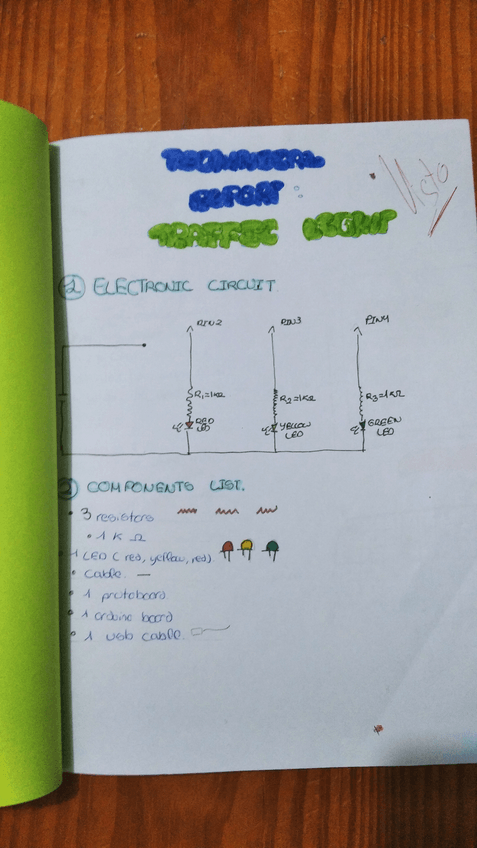 TECHNICAL
REPORT:
TRAFFIC LIGHT
Visto
1 ELECTRONIC CIRCUIT
PIN2
PIN3
PIN4
R1=1KΩ
R2=1KΩ
R3=1KΩ
RED
LED
YELLOW
LED
GREEN
LED
2 COMPONENTS LIST.
• 3 resistors
• 1 K Ω
• 1 LED ( red, yellow, red)
• cable.
• 1 protoboard
• 1 arduino board
• 1 usb cable.